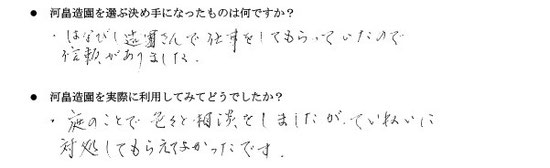 ● 河畠造園を選ぶ決め手になったものは何ですか?
・はなびし造園さんで仕事をしてもらっていたので
信頼がありました.
● 河畠造園を実際に利用してみてどうでしたか?
・庭のことで色々と相談をしましたが、ていねいに
対処してもらえてよかったです.